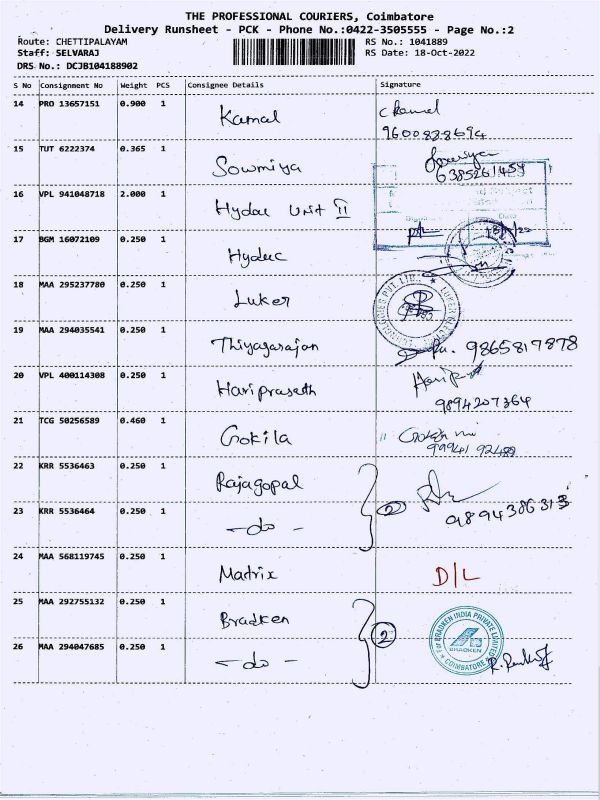 THE PROFESSIONAL COURIERS, Coimbatore
Delivery Runsheet - PCK - Phone No.:0422-3505555 - Page No.:2
Route: CHETTIPALAYAM RS No.: 1041889
Staff: SELVARAJ RS Date: 18-Oct-2022
DRS No.: DCJB104188902
S No Consignment No Weight PCS Consignee Details Signature
14 PRO 13657151 0.900 1 Kamal
9600838694
15 TUT 6222374 0.365 1 Sowmiya Sowmiya
6385261459
16 VPL 941048718 2.000 1 Hydac Unit II
17 BGM 16072109 0.250 1 Hydac
18 MAA 295237780 0.250 1 Luker
19 MAA 294035541 0.250 1 Thiyagarajan 9865817878
20 VPL 400114308 0.250 1 Hariprasath
9894207364
21 TCG 50256589 0.460 1 Gokila
99941 92489
22 KRR 5536463 0.250 1 Rajagopal
23 KRR 5536464 0.250 1 -do- 2 9894386313
24 MAA 568119745 0.250 1 Matrix D/L
25 MAA 292755132 0.250 1 Bradken
26 MAA 294047685 0.250 1 -do- 2
For BRADKEN INDIA PRIVATE LIMITED
BRADKEN
COIMBATORE